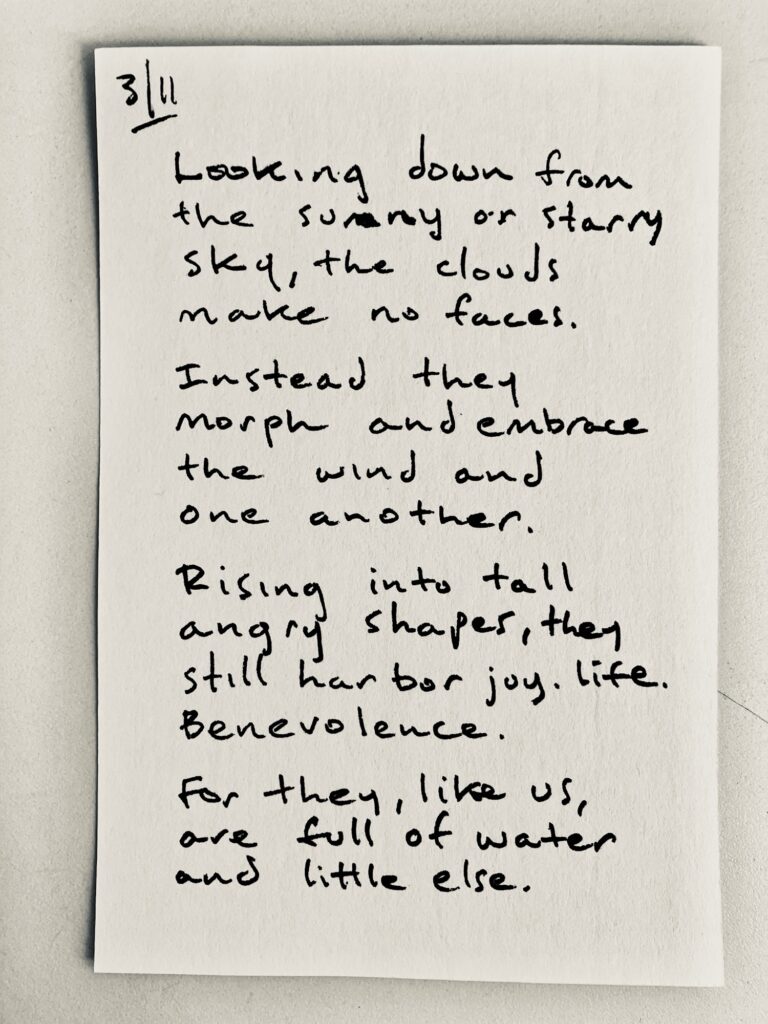 3/11
Looking down from
the sunny or starry
sky, the clouds
make no faces.
Instead they
morph and embrace
the wind and
one another.
Rising into tall
angry shapes, they
still harbor joy. life.
Benevolence.
For they, like us,
are full of water
and little else.